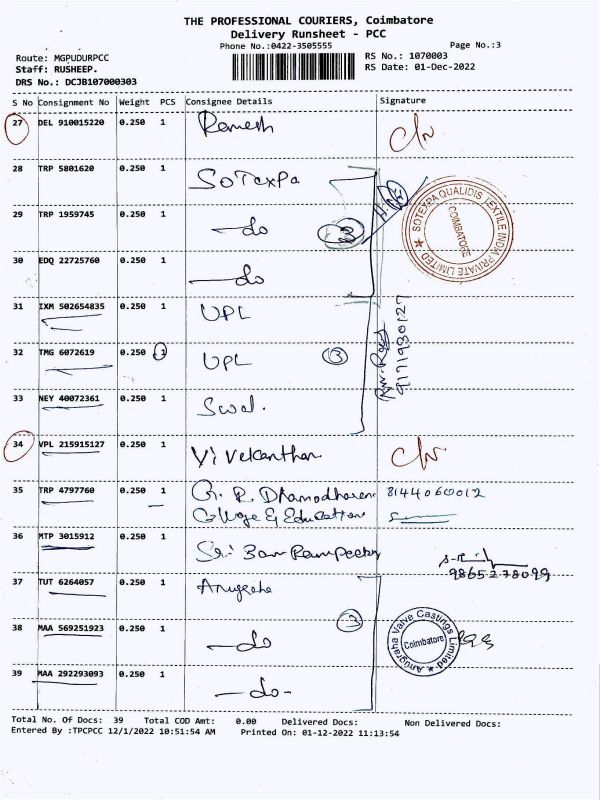 THE PROFESSIONAL COURIERS, Coimbatore
Delivery Runsheet - PCC
Phone No.:0422-3505555
Page No.:3
Route: MGPUDURPCC
RS No.: 1070003
Staff: RUSHEEP.
RS Date: 01-Dec-2022
DRS No.: DCJB107000303
S No Consignment No Weight PCS Consignee Details Signature
27 DEL 910015220 0.250 1 Ramesh
28 TRP 5801620 0.250 1 SOTexPa
29 TRP 1959745 0.250 1 -do 3
30 EDQ 22725760 0.250 1 -do
SOTEXPA QUALIDIS TEXTILE INDIA PRIVATE LIMITED
COIMBATORE
31 IXM 502654835 0.250 1 UPL
32 TMG 6072619 0.250 1 UPL 3
9171980127
33 NEY 40072361 0.250 1 Swal.
34 VPL 215915127 0.250 1
35 TRP 4797760 0.250 1 G. R. Dhamodharan 8144060012
College of Education
36 MTP 3015912 0.250 1 Sri
9865278099
37 TUT 6264057 0.250 1 Anugraha
38 MAA 569251923 0.250 1 -do 3
Anugraha Valve Castings Limited
Coimbatore
39 MAA 292293093 0.250 1 -do-
Total No. Of Docs: 39 Total COD Amt: 0.00 Delivered Docs: Non Delivered Docs:
Entered By :TPCPCC 12/1/2022 10:51:54 AM Printed On: 01-12-2022 11:13:54